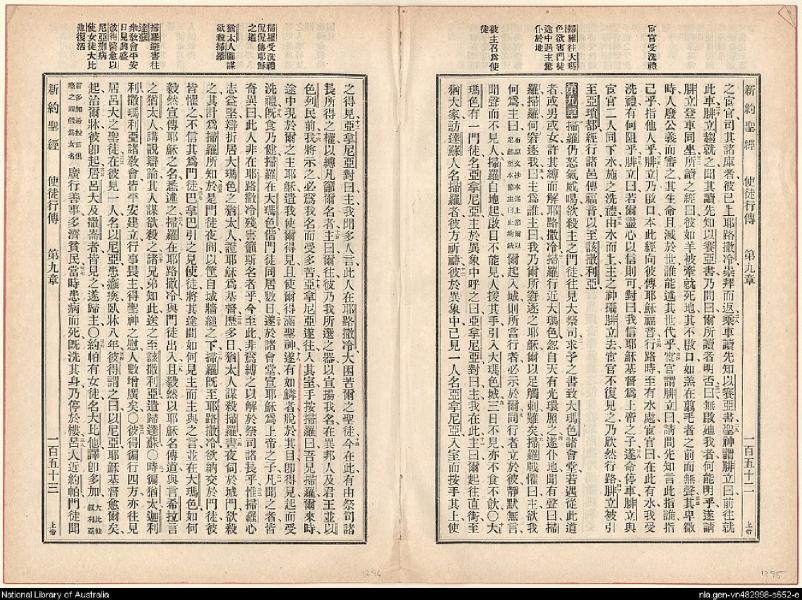 宦官受洗禮
掃羅往大瑪
色欲害門徒
途中遇主驚
仆於地
被主召爲使
徒
新約聖經 使徒行傳 第九章 一百五十二 上帝
之宦官司其諸庫者彼已上耶路撒冷崇拜而返乘車讀先知以賽亞書聖神謂腓立曰前往就
此車腓立趨就之聞其讀先知以賽亞書乃問曰爾所讀者明否曰無啟迪我者何能明乎遂請
腓立登車同坐所讀之經曰彼如羊被牽就死地其不啟口如羔在翦毛者之前而無聲其卑微
時人廢公義而審之其生命且滅於世誰能述其世代乎宦官謂腓立曰請問先知言此指誰指
己乎指他人乎腓立乃啟口本此經向彼傳耶穌福音行路時至有水處宦官曰在此有水我受
洗禮有何阻乎腓立曰若爾盡心以信則可對曰我信耶穌基督爲上帝之子遂命停車腓立與
宦官二人同下水施之洗禮由水而上主之神攝腓立去宦官不復見之乃欣然行路腓立被引
至亞瑣都經行諸邑傳福音以至該撒利亞
第九章 掃羅仍怒氣威喝欲殺主之門徒往見大祭司求予之書致大瑪色諸會堂若遇從此道
者或男或女許其縛而解耶路撒冷掃羅行近大瑪色忽自天有光環照之遂仆地聞有聲曰掃
羅掃羅何窘逐我曰主爲誰主曰我乃爾所窘逐之耶穌爾以足觸刺難矣掃羅戰慄曰主欲我
何爲主曰爾起入城則所當行者必示於爾同行者立於彼靜默無言
聞聲而不見人掃羅自地起啟目不能見人援其手引入大瑪色城三日不見亦不食不飲〇大
瑪色有一門徒名亞拿尼亞主於異象中呼之曰亞拿尼亞對曰主我在此主曰爾起往直街至
猶大家訪達蘇人名掃羅者彼方祈禱彼於異象中已見一人名亞拿尼亞入室而按手其上使
掃羅受洗禮
侃侃傳耶穌
之道
猶太人謀
欲殺掃羅
掃羅避害往
達蘇
眾教會平安
日見興盛
彼得醫愈以
尼亞癱病
使女徒大比
他復活
之得見亞拿尼亞對曰主我聞多人言此人在耶路撒冷大困若爾之聖徒今在此有由祭司諸
長所得之權以縛凡籲爾名者主曰爾往彼乃我所選之器以宣揚我名在異邦人及君王並以
色列民前我將示之必爲我名而受多苦亞拿尼亞遂往入其室手按掃羅曰吾兄掃羅爾來時
途中現於爾之主耶穌遣我使爾得見且使爾得滿聖神遂有如鱗者脫於其目卽得見起而受
洗禮旣食乃健掃羅在大瑪色偕門徒同居數日遂於諸會堂宣耶穌爲上帝之子凡聞之者皆
奇異曰此人非在耶路撒冷殘害籲斯名者乎今至此非爲縛之以解於祭司諸長乎惟掃羅心
志益堅辯折居大瑪色之猶太人證耶穌爲基督歷多日猶太人謀殺掃羅晝夜伺於城門欲殺
之其計爲掃羅所知於是門徒夜間以筐自城牆縋之下掃羅旣至耶路撒冷欲納交於門徒彼
皆懼之不信其爲門徒巴拿巴引之見使徒將其途間如何見主而主與之言並在大瑪色如何
毅然宣傳耶穌之名悉述之掃羅在耶路撒冷與門徒出入且毅然以耶穌名傳道與言希拉言
之猶太人講說辯論其人謀欲殺之諸兄弟知此送之至該撒利亞遣歸達蘇〇時徧猶太迦利
利撒瑪利亞諸教會皆平安建立行事畏主得聖神之慰人數增廣矣〇彼得徧行四方亦往見
居呂大之聖徒在彼見一人名以尼亞患癱瘓臥牀八年彼得謂之曰以尼亞耶穌基督愈爾矣
起治爾牀彼卽起居呂大及撒崙者皆見之遂歸主〇約帕有女徒名大比他譯卽多加
廣行善事多濟貧民當時患病而死旣洗其身乃停於樓呂大近約帕門徒聞
新約聖經 使徒行傳 第九章 一百五十三 上帝
1296
1295
National Library of Australia
nla.gen-vn482998-s652-e